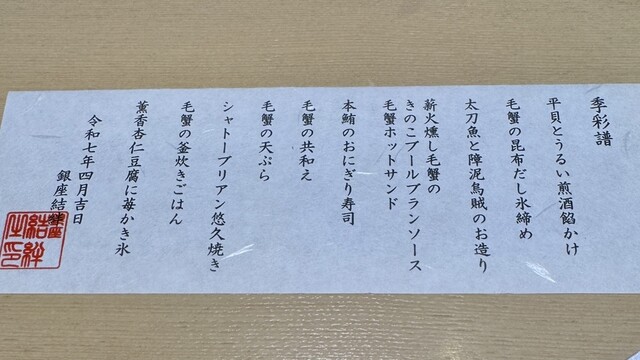 季彩譜
平貝とうるい煎酒餡かけ
毛蟹の昆布だし氷締め
太刀魚と障泥烏賊のお造り
薪火燻し毛蟹の
きのこブールブランソース
毛蟹ホットサンド
本鮪のおにぎり寿司
毛蟹の共和え
毛蟹の天ぷら
シャトーブリアン悠久焼き
毛蟹の釜炊きごはん
薫香杏仁豆腐に苺かき氷
令和七年四月吉日
銀座結